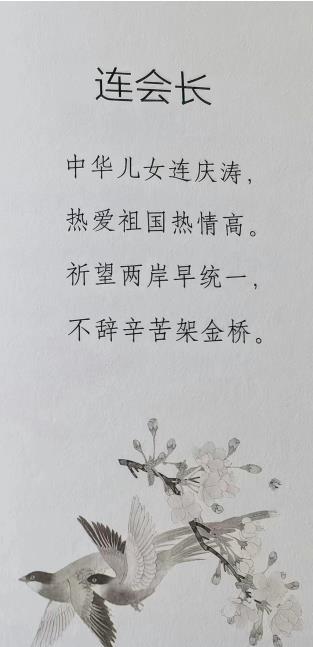 连会长
中华儿女连庆涛，
热爱祖国热情高。
祈望两岸早统一，
不辞辛苦架金桥。